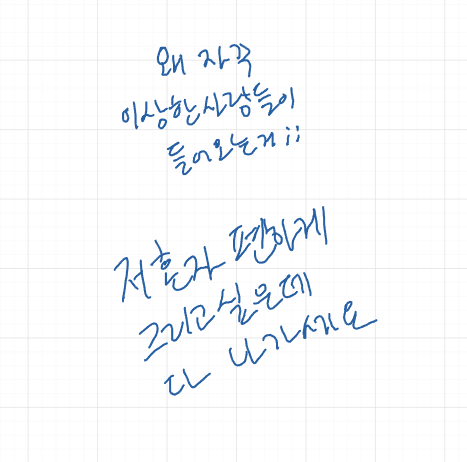 왜 자꾹
이상한사람들이
들어오는거;;
저혼자 편하게
그리고싶은데
다 나가세요